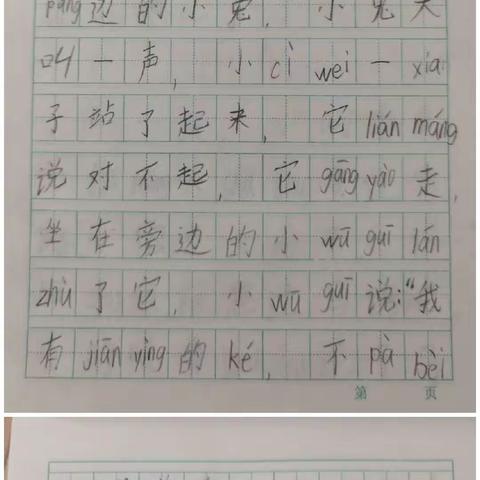 páng边的小兔,小兔大
叫一声,小cì wei一xià
子站了起来,它lián máng
说对不起,它gāng yào走,
坐在旁边的小wū guī lán
zhù了它,小wū guī说:“我
有jiān yìng的ké,不pà bèi
第 页